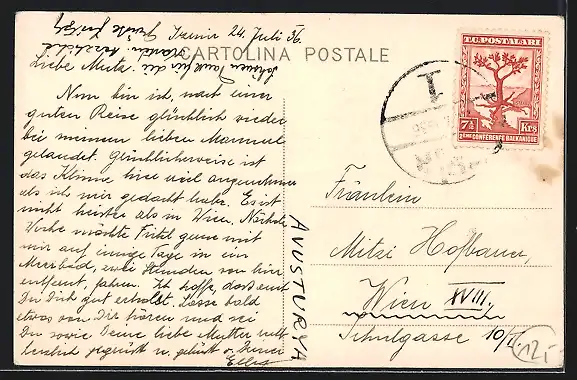 Izmir 24. Juli 36.
CARTOLINA POSTALE
Liebe Mutz.
Nun bin ich, nach einer
guten Reise glücklich wieder
bei meinem lieben Manuel
gelandet. Glücklicherweise ist
das Klima hier viel angenehmer
als ich mir gedacht habe. Es ist
nicht heißer als in Wien. Nächste
Woche möchte Fritzl gerne mit
mir auf einige Tage in ein
Meerbad, zwei Stunden von hier
entfernt, fahren. Ich hoffe, dass auch
Du Dich gut erholst. Lasse bald
etwas von Dir hören und sei
Du sowie Deine liebe Mutter recht
herzlich gegrüßt u. geküßt v. Deiner
Ella
AVUSTURYA
T.C. POSTALARI
7½ Krs
2ÈME CONFÉRENCE BALKANIQUE
Fräulein
Mitzi Hofbauer,
Wien XVIII.,
Schulgasse 10/II.
12,-